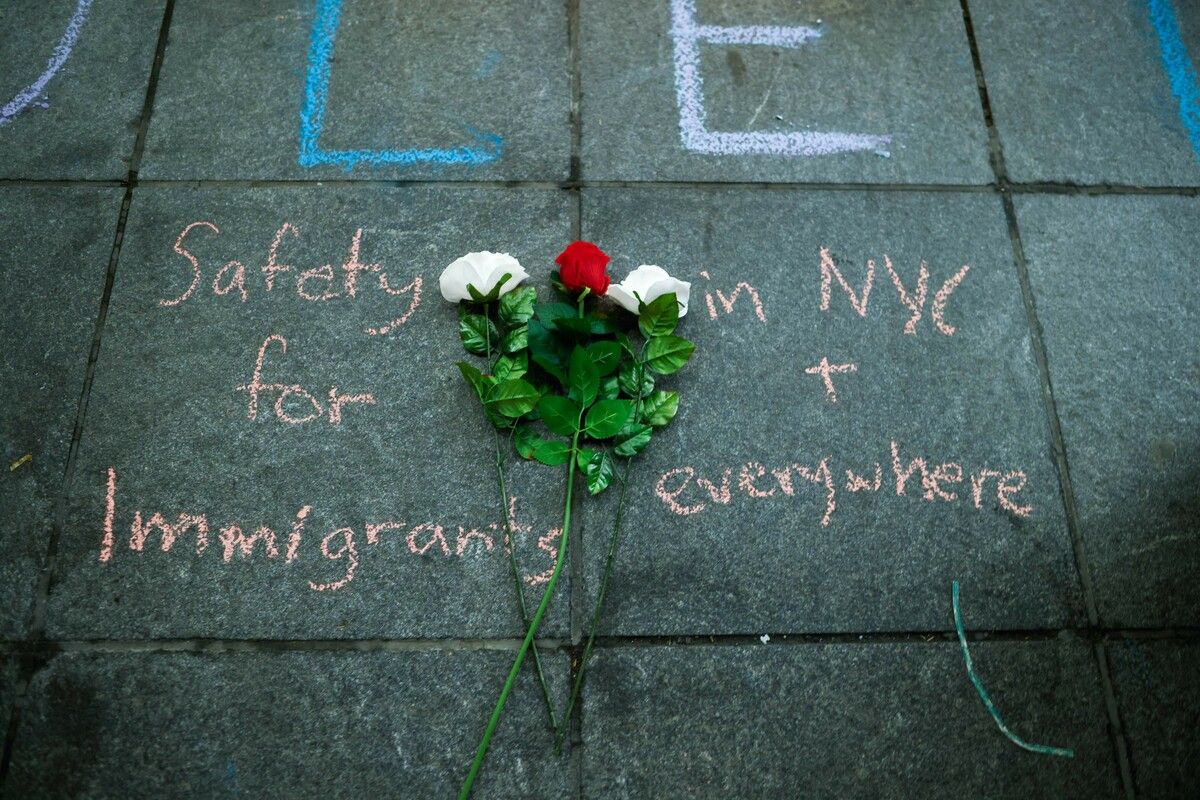 L E
Safety
for
Immigrants
in NYC
+
everywhere